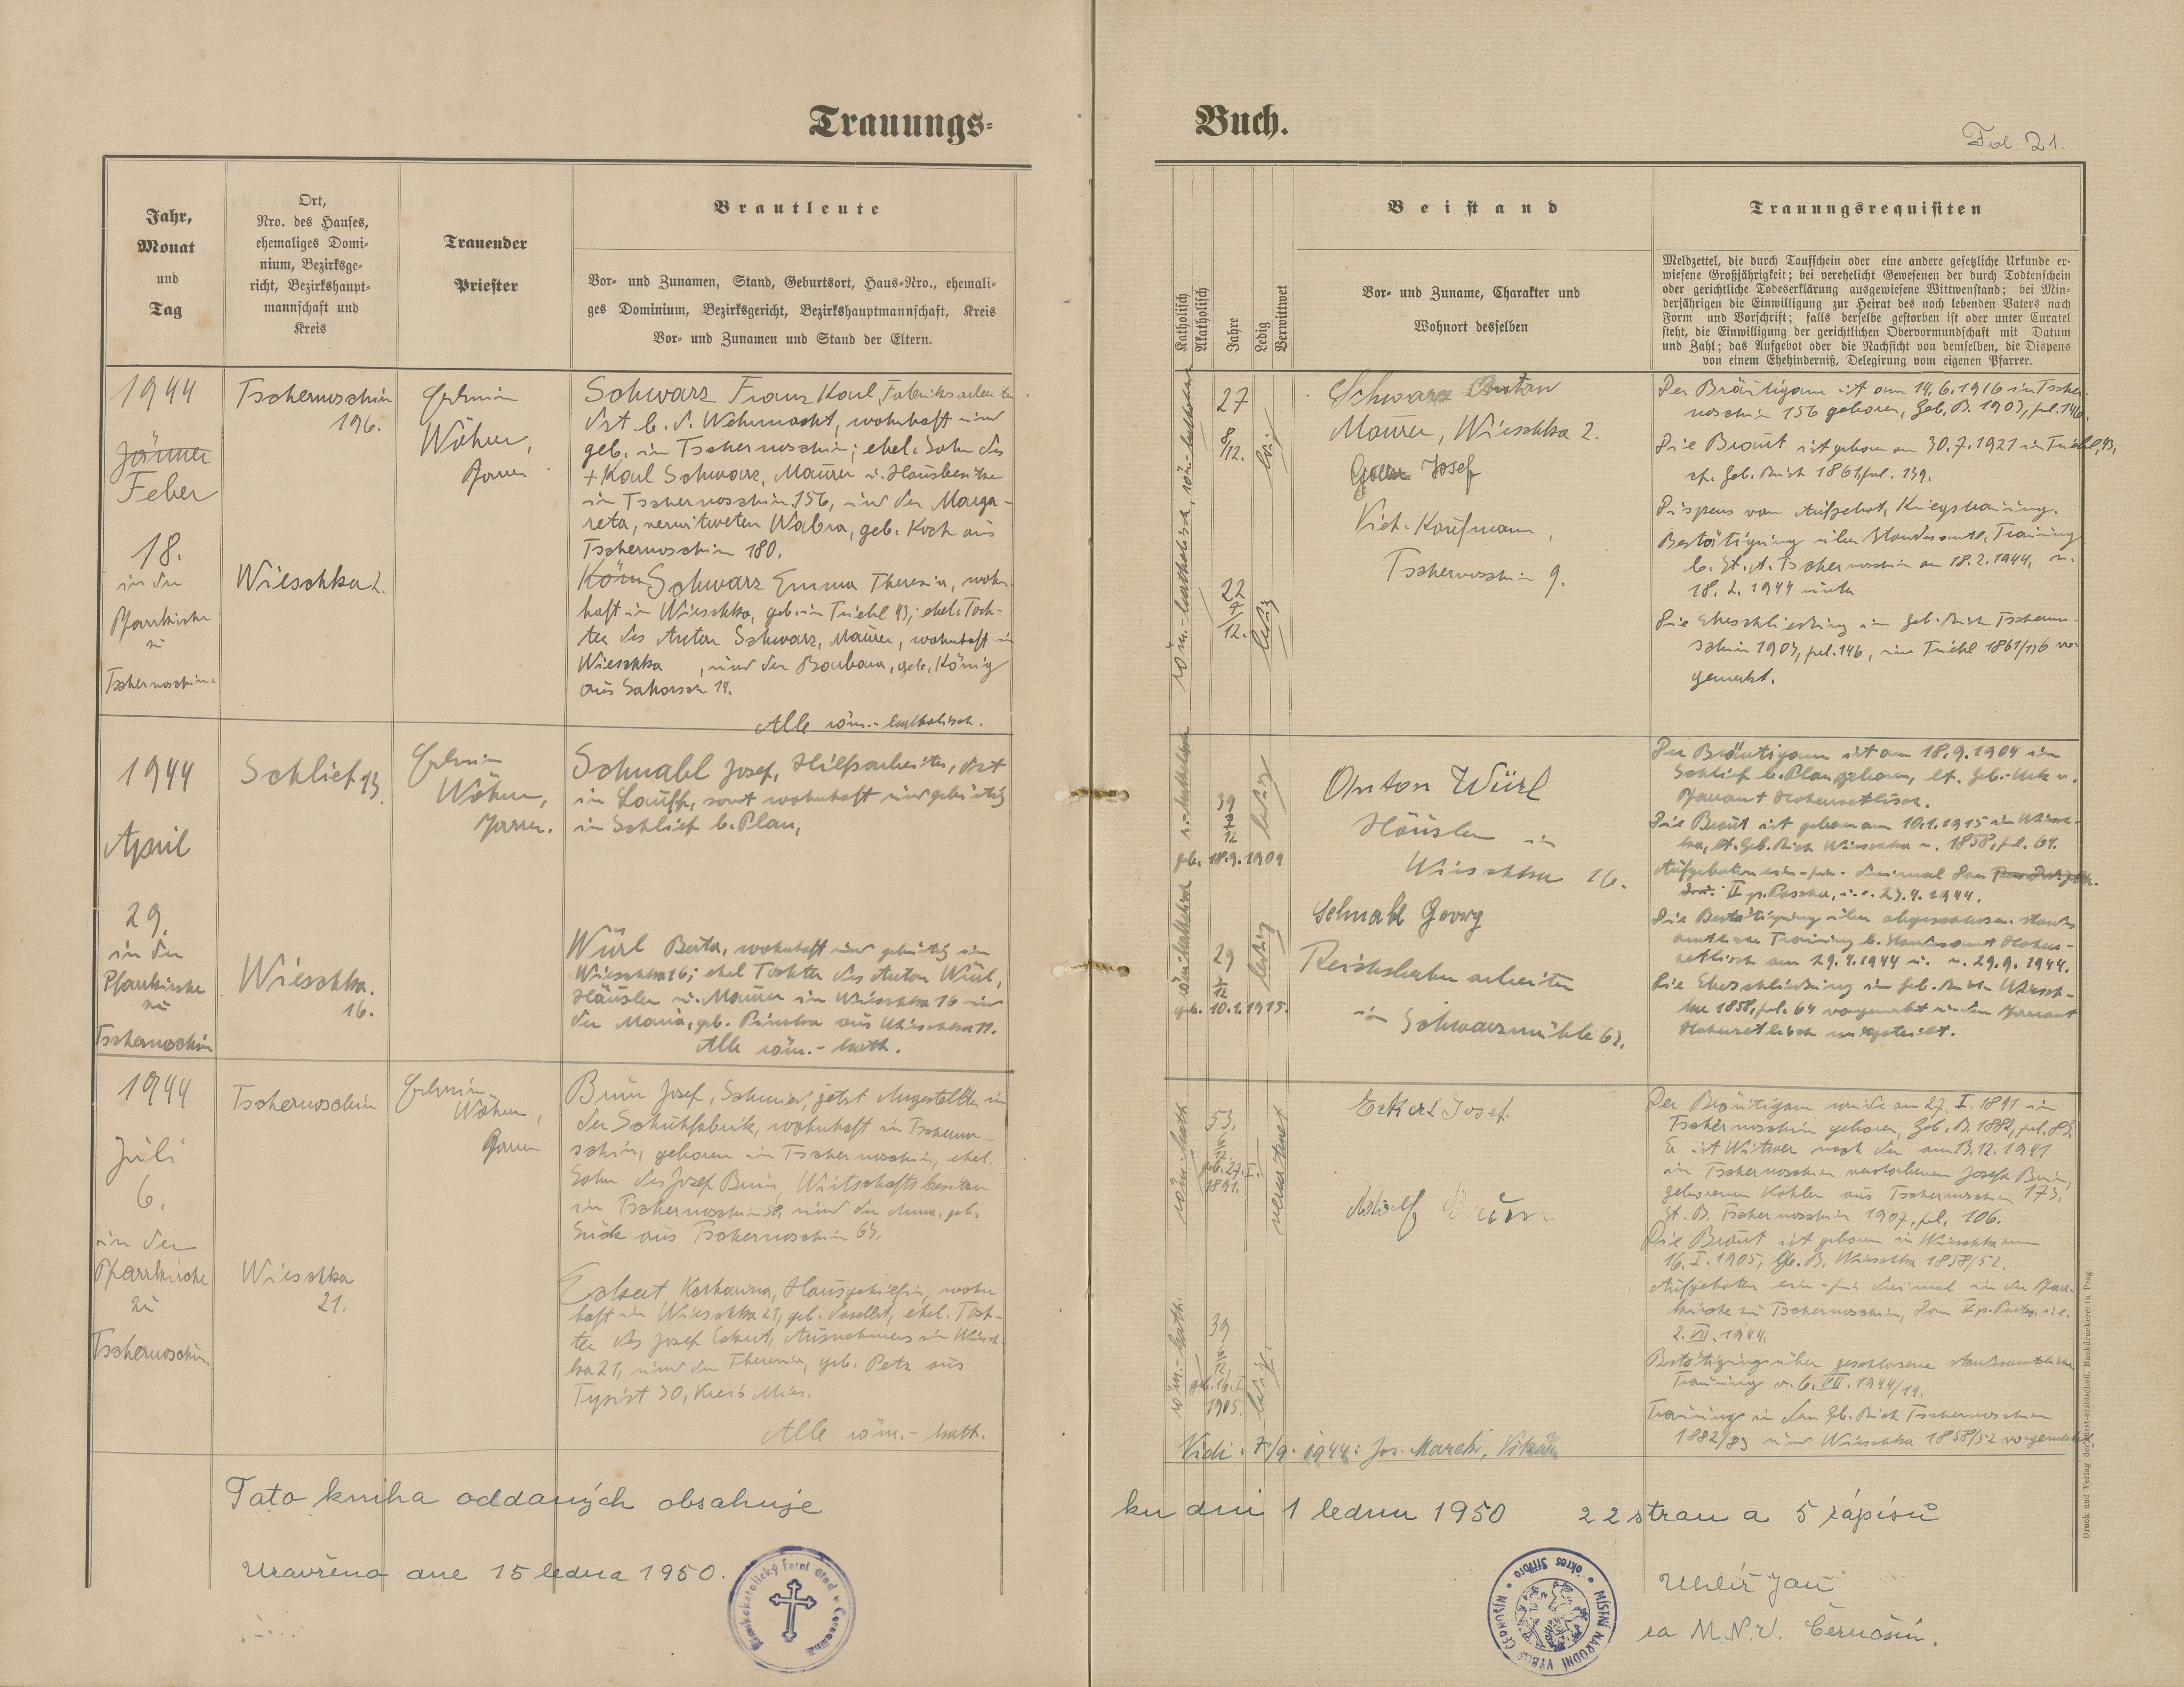 Trauungs-
Buch.
Fol. 21.
Jahr,
Monat
und
Tag
Ort,
Nro. des Hauses,
ehemaliges Domi-
nium, Bezirksge-
richt, Bezirkshaupt-
mannschaft und
Kreis
Trauender
Priester
Brautleute
Vor- und Zunamen, Stand, Geburtsort, Haus-Nro., ehemali-
ges Dominium, Bezirksgericht, Bezirkshauptmannschaft, Kreis
Vor- und Zunamen und Stand der Eltern.
Katholisch
Akatholisch
Jahre
Ledig
Verwittwet
Beistand
Vor- und Zuname, Charakter und
Wohnort desselben
Trauungsrequisiten
Meldzettel, die durch Taufschein oder eine andere gesetzliche Urkunde er-
wiesene Großjährigkeit; bei verehelicht Gewesenen der durch Todtenschein
oder gerichtliche Todeserklärung ausgewiesene Wittwenstand; bei Min-
derjährigen die Einwilligung zur Heirat des noch lebenden Vaters nach
Form und Vorschrift; falls derselbe gestorben ist oder unter Curatel
steht, die Einwilligung der gerichtlichen Obervormundschaft mit Datum
und Zahl; das Aufgebot oder die Nachsicht von demselben, die Dispens
von einem Ehehinderniß, Delegirung vom eigenen Pfarrer.
1944
Jänner
Feber
18.
in der
Pfarrkirche
zu
Tschernoschin.
Tschernoschin
196.
Wieschka 2.
Erhnin
Wöhrer,
Pfarrer
Schwarz Franz Karl, Fabriksarbeiter
dzt. b. d. Wehrmacht, wohnhaft und
geb. in Tschernoschin; ehel. Sohn des
+ Karl Schwarz, Maurer u. Hausbesitzer
in Tschernoschin 156, und der Marga-
reta, verwitweten Wabra, geb. Koch aus
Tschernoschin 180.
Schwarz Emma Theresia, wohn-
haft in Wieschka, geb. in Triebl 43; ehel. Toch-
ter des Anton Schwarz, Maurer, wohnhaft in
Wieschka, und der Barbara, geb. König
aus 14.
Alle röm.-katholisch.
röm.-katholisch, röm.-katholisch
27
8/12.
22
7/12.
ledig
Schwarz Anton
Maurer, Wieschka 2.
Josef
Vieh-Kaufmann,
Tschernoschin 9.
Der Bräutigam ist am 14.6.1916 in Tscher-
noschin 156 geboren, Geb. B. 1903, fol. 146.
Die Braut ist geboren am 30.7.1921 in Triebl, 43,
Geb. Buch 1861, fol. 139.
Dispens vom Aufgebot, Kriegstrauung.
Bestätigung über Standesamtl. Trauung
b. St. A. Tschernoschin am 18.2.1944, v.
18.2.1944
Die Eheschließung im Geb. Buch Tscherno-
schin 1903, fol. 146, im Triebl 1861/136 vor-
gemerkt.
1944
April
29.
in der
Pfarrkirche
zu
Tschernoschin
Schlief 13.
Wieschka.
16.
Wöhrer,
Pfarrer.
Schnabl Josef, Hilfsarbeiter, dzt
in Lauffs, sonst wohnhaft und gebürtig
in Schlief b. Plan,
Würl Berta, wohnhaft und gebürtig in
Wieschka 16; ehel Tochter des Anton Würl,
Häusler u. Maurer in Wieschka 16 und
der Maria, geb. aus Wieschka 11.
Alle röm.-kath.
39
7/12
geb. 18.9.1904
ledig
29
3/12
geb. 10.1.1915.
ledig
Anton Würl
Häusler in
Wieschka 16.
Schnabl Georg
Reichsbahnarbeiter
in Schwarzmühle 63.
Der Bräutigam ist am 18.9.1904 in
Schlief b. Plan geboren, lt. Geb.-Urk v.
Pfarramt Hohenzetlisch.
Die Braut ist geboren am 10.1.1915 in Wiesch-
ka, lt. Geb. Buch Wieschka v. 1858, fol. 64.
Aufgeboten dreimal
II p. Pascha, i.e. 23.4.1944.
Die Bestätigung über abgeschlossene standes-
amtliche Trauung b. Standesamt Hohen-
zetlisch am 29.4.1944 v. 29.4.1944.
Die Eheschließung im Geb. Buch Wiesch-
ka 1858, fol. 64 vorgemerkt und dem Pfarramt
Hohenzetlisch mitgeteilt.
1944
Juli
6.
in der
Pfarrkirche
zu
Tschernoschin.
Tschernoschin
Wieschka
21.
Wöhrer,
Pfarrer
Braun Josef, Schmied, jetzt Angestellter in
der Schuhfabrik, wohnhaft in Tscherno-
schin, geboren in Tschernoschin, ehel.
Sohn des Josef Braun, Wirtschaftsbesitzer
in Tschernoschin 58, und der Anna, geb.
aus Tschernoschin 63.
Eckert Katharina, Hausgehilfin, wohn-
haft in Wieschka 21, geb. daselbst, ehel. Toch-
ter des Josef Eckert, Ausnehmers in Wiesch-
ka 21, und der Theresia, geb. Petz aus
30, Kreis Mies.
Alle röm.-kath.
röm.-kath.
53.
geb. 27.I.
1891.
verwitwet
röm.-kath.
39
6/12.
geb. 16.I
1905.
ledig.
Eckert Josef.
Adolf Braun
Der Bräutigam wurde am 27.I.1891 in
Tschernoschin geboren, Geb. B. 1882, fol. 83.
Er ist Witwer nach der am 13.12.1941
in Tschernoschin verstorbenen Josefa Braun,
geborenen Kohler aus Tschernoschin 173.
St. B. Tschernoschin 1907, fol. 106.
Die Braut ist geboren in Wieschka am
16.I.1905, Gb. B. Wieschka 1858/52.
Aufgeboten dreimal in der Pfarr-
kirche zu Tschernoschin, Dom V p. Pentec. i.e.
2.VII.1944.
Bestätigung über geschlossene standesamtliche
Trauung v. 6.VII.1944/14.
Trauung in dem Gb. Buch Tschernoschin
1882/83 und Wieschka 1858/52 vorgemerkt
Vidi: 7./9. 1944: Jos. March, Vikär
Tato kniha oddaných obsahuje
ku dni 1 lednu 1950 22 stran a 5 zápisů
Uzavřena dne 15 ledna 1950.
Římskokatolický farní úřad v Černošíně
MÍSTNÍ NÁRODNÍ VÝBOR ČERNOŠÍN
okres Stříbro
Uhlíř Jan
za M.N.V. Černošín.
Druck und Verlag der fürst-erzbischöfl. Buchdruckerei in Prag.